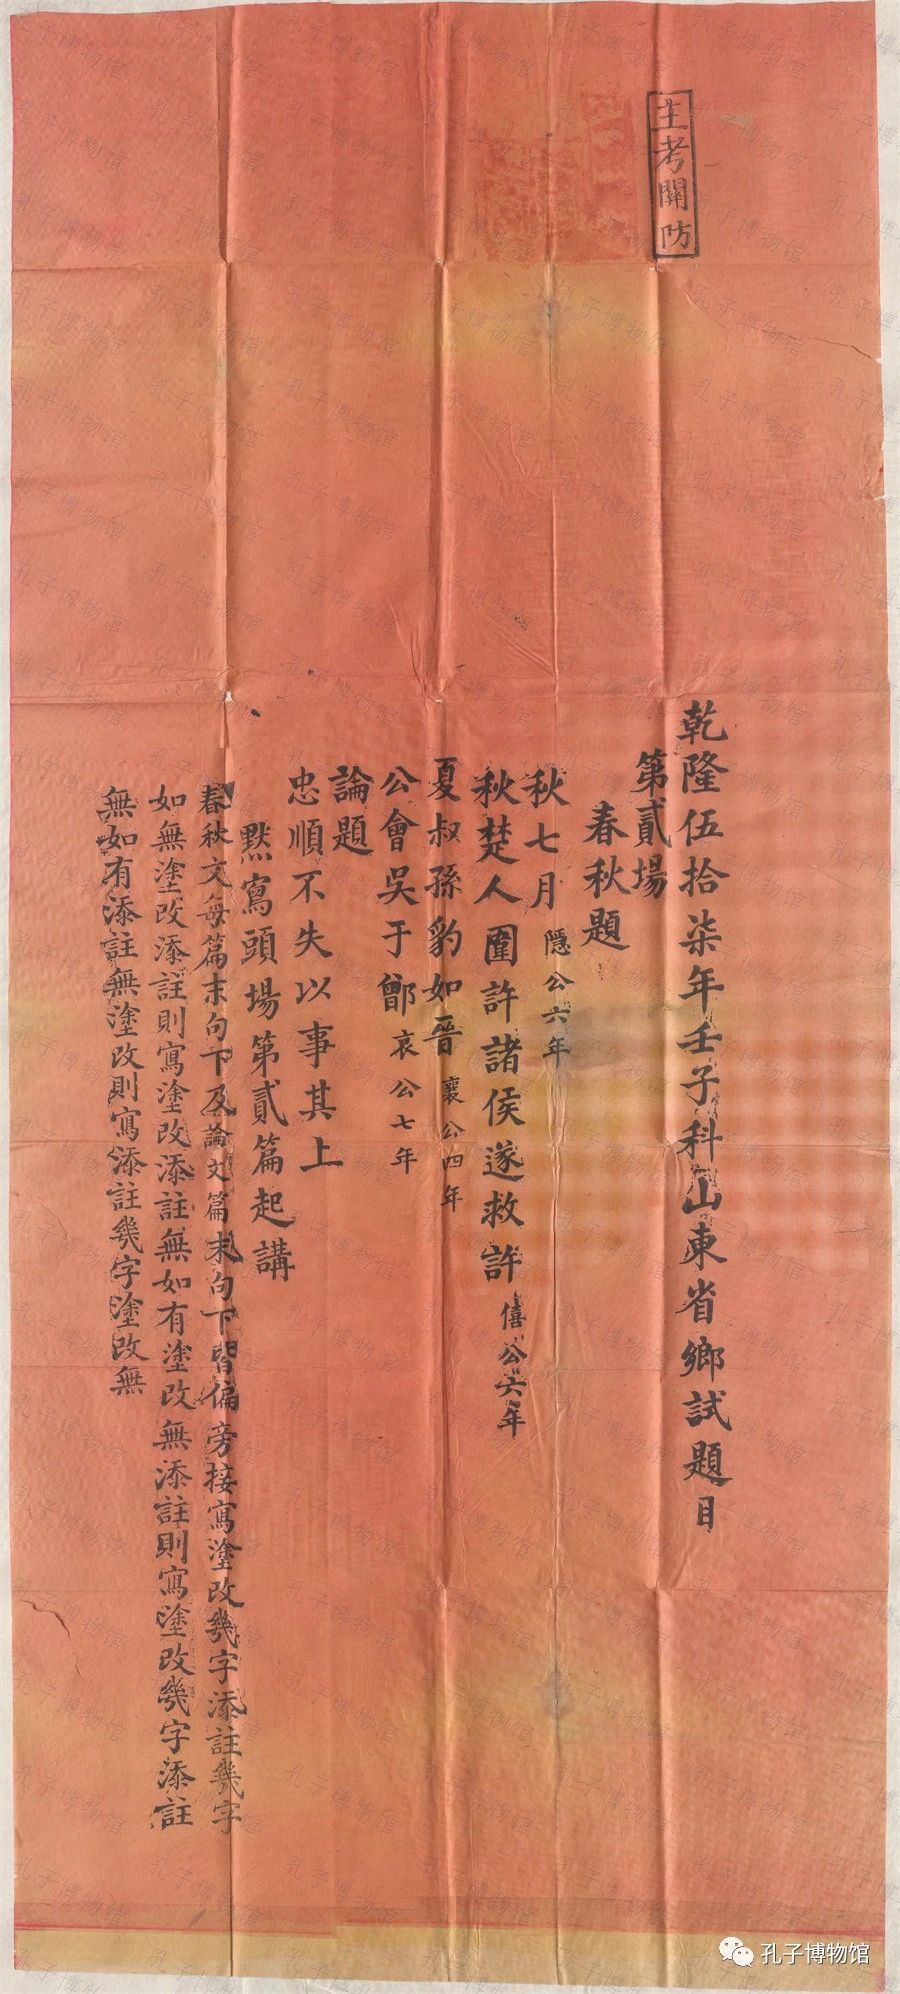 主考關防
乾隆伍拾柒年壬子科山東省鄉試題目
第貳場
春秋題
秋七月 隱公六年
秋楚人圍許諸侯遂救許 僖公六年
夏叔孫豹如晉 襄公四年
公會吳于鄫 哀公七年
論題
忠順不失以事其上
默寫頭場第貳篇起講
春秋文每篇末句下及論文篇末句下留偏旁接寫塗改幾字添註幾字
如無塗改添註則寫塗改添註無如有塗改無添註則寫塗改幾字添註
無如有添註無塗改則寫添註幾字塗改無
孔子博物馆